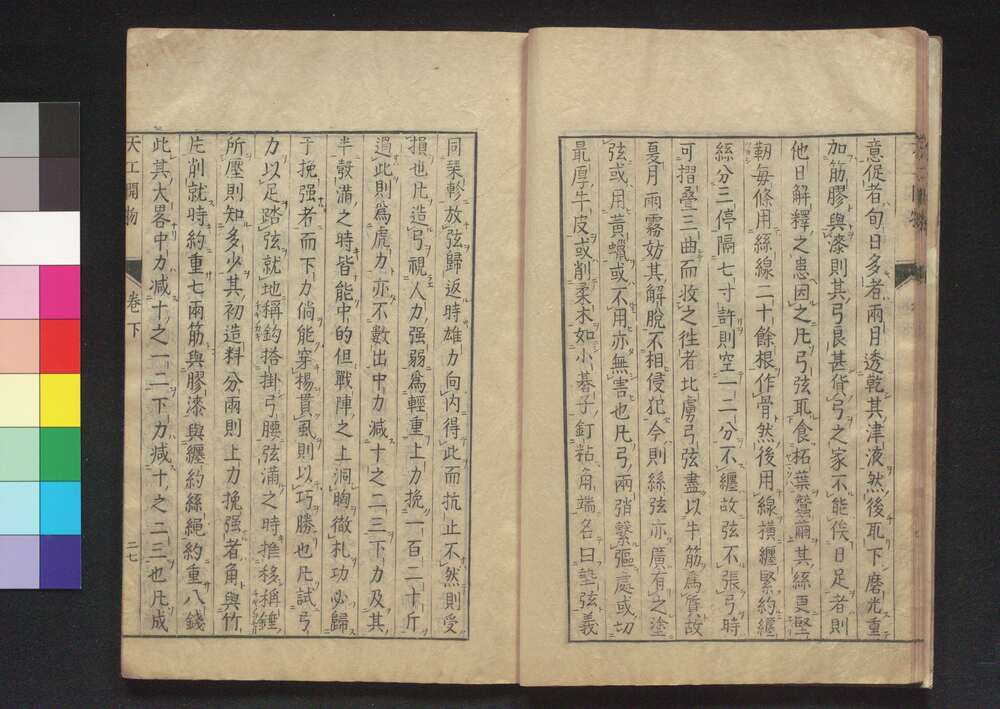 意促者旬日多者兩月透乾其津液然後取下磨光重
加筋膠與漆則其弓良甚貨弓之家不能俟日足者則
他日解釋之患因之凡弓弦取食柘葉蠶繭其絲更堅
韌每條用絲線二十餘根作骨然後用線橫纏緊約纏
絲分三停隔七寸許則空一二分不纏故弦不張弓時
可摺疊三曲而收之徃者北虜弓弦盡以牛筋爲質故
夏月雨霧妨其解脫不相侵犯今則絲弦亦廣有之塗
弦或用黃蠟或不用亦無害也凡弓兩弰繫彄處或切
最厚牛皮或削柔木如小棊子釘粘角端名曰墊弦義
同琹軫放弦歸返時雄力向內得此而抗止不然則受
損也凡造弓視人力强弱爲輕重上力挽一百二十斤
過此則爲虎力亦不數出中力減十之二三下力及其
半彀滿之時皆能中的但戰陣之上洞胸徹札功必歸
于挽强者而下力倘能穿楊貫虱則以巧勝也凡試弓
力以足踏弦就地稱鈎搭掛弓腰弦滿之時推移稱錘
所壓則知多少其初造料分兩則上力挽强者角與竹
片削就時約重七兩筋與膠漆與纏約絲繩約重八錢
此其大畧中力減十之一二下力減十之二三也凡成
天工開物 卷下 二七